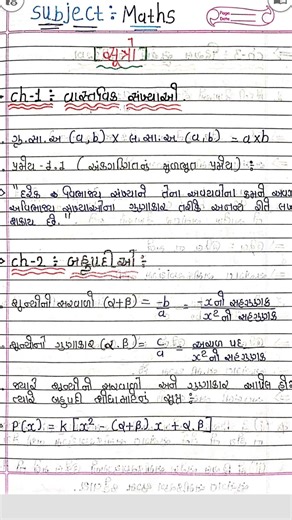 Subject:- Maths
Page:
Date:
[સૂત્રો]
ch-1 : વાસ્તવિક સંખ્યાઓ.
ગુ.સા.અ (a,b) × લ.સા.અ (a,b) = a×b
પ્રમેય - 1.1 (અંકગણિતનું મૂળભૂત પ્રમેય) :
"દરેક વિભાજ્ય સંખ્યાને તેના અવયવોના ક્રમને
અવિભાજ્ય સંખ્યાઓના ગુણાકાર તરીકે અનન્ય રીતે
શકાય છે."
ch-2 : બહુપદીઓ :
શૂન્યોનો સરવાળો (α+β) = -b/a = -xનો સહગુણક / x²નો સહગુણક
શૂન્યોનો ગુણાકાર (α.β) = c/a = અચળ પદ / x²નો સહગુણક
જ્યારે શૂન્યોનો સરવાળો અને ગુણાકાર આપેલ હોય
ત્યારે બહુપદી શોધવા માટેનું સૂત્ર :
P(x) = k [x² - (α+β) x + α.β]